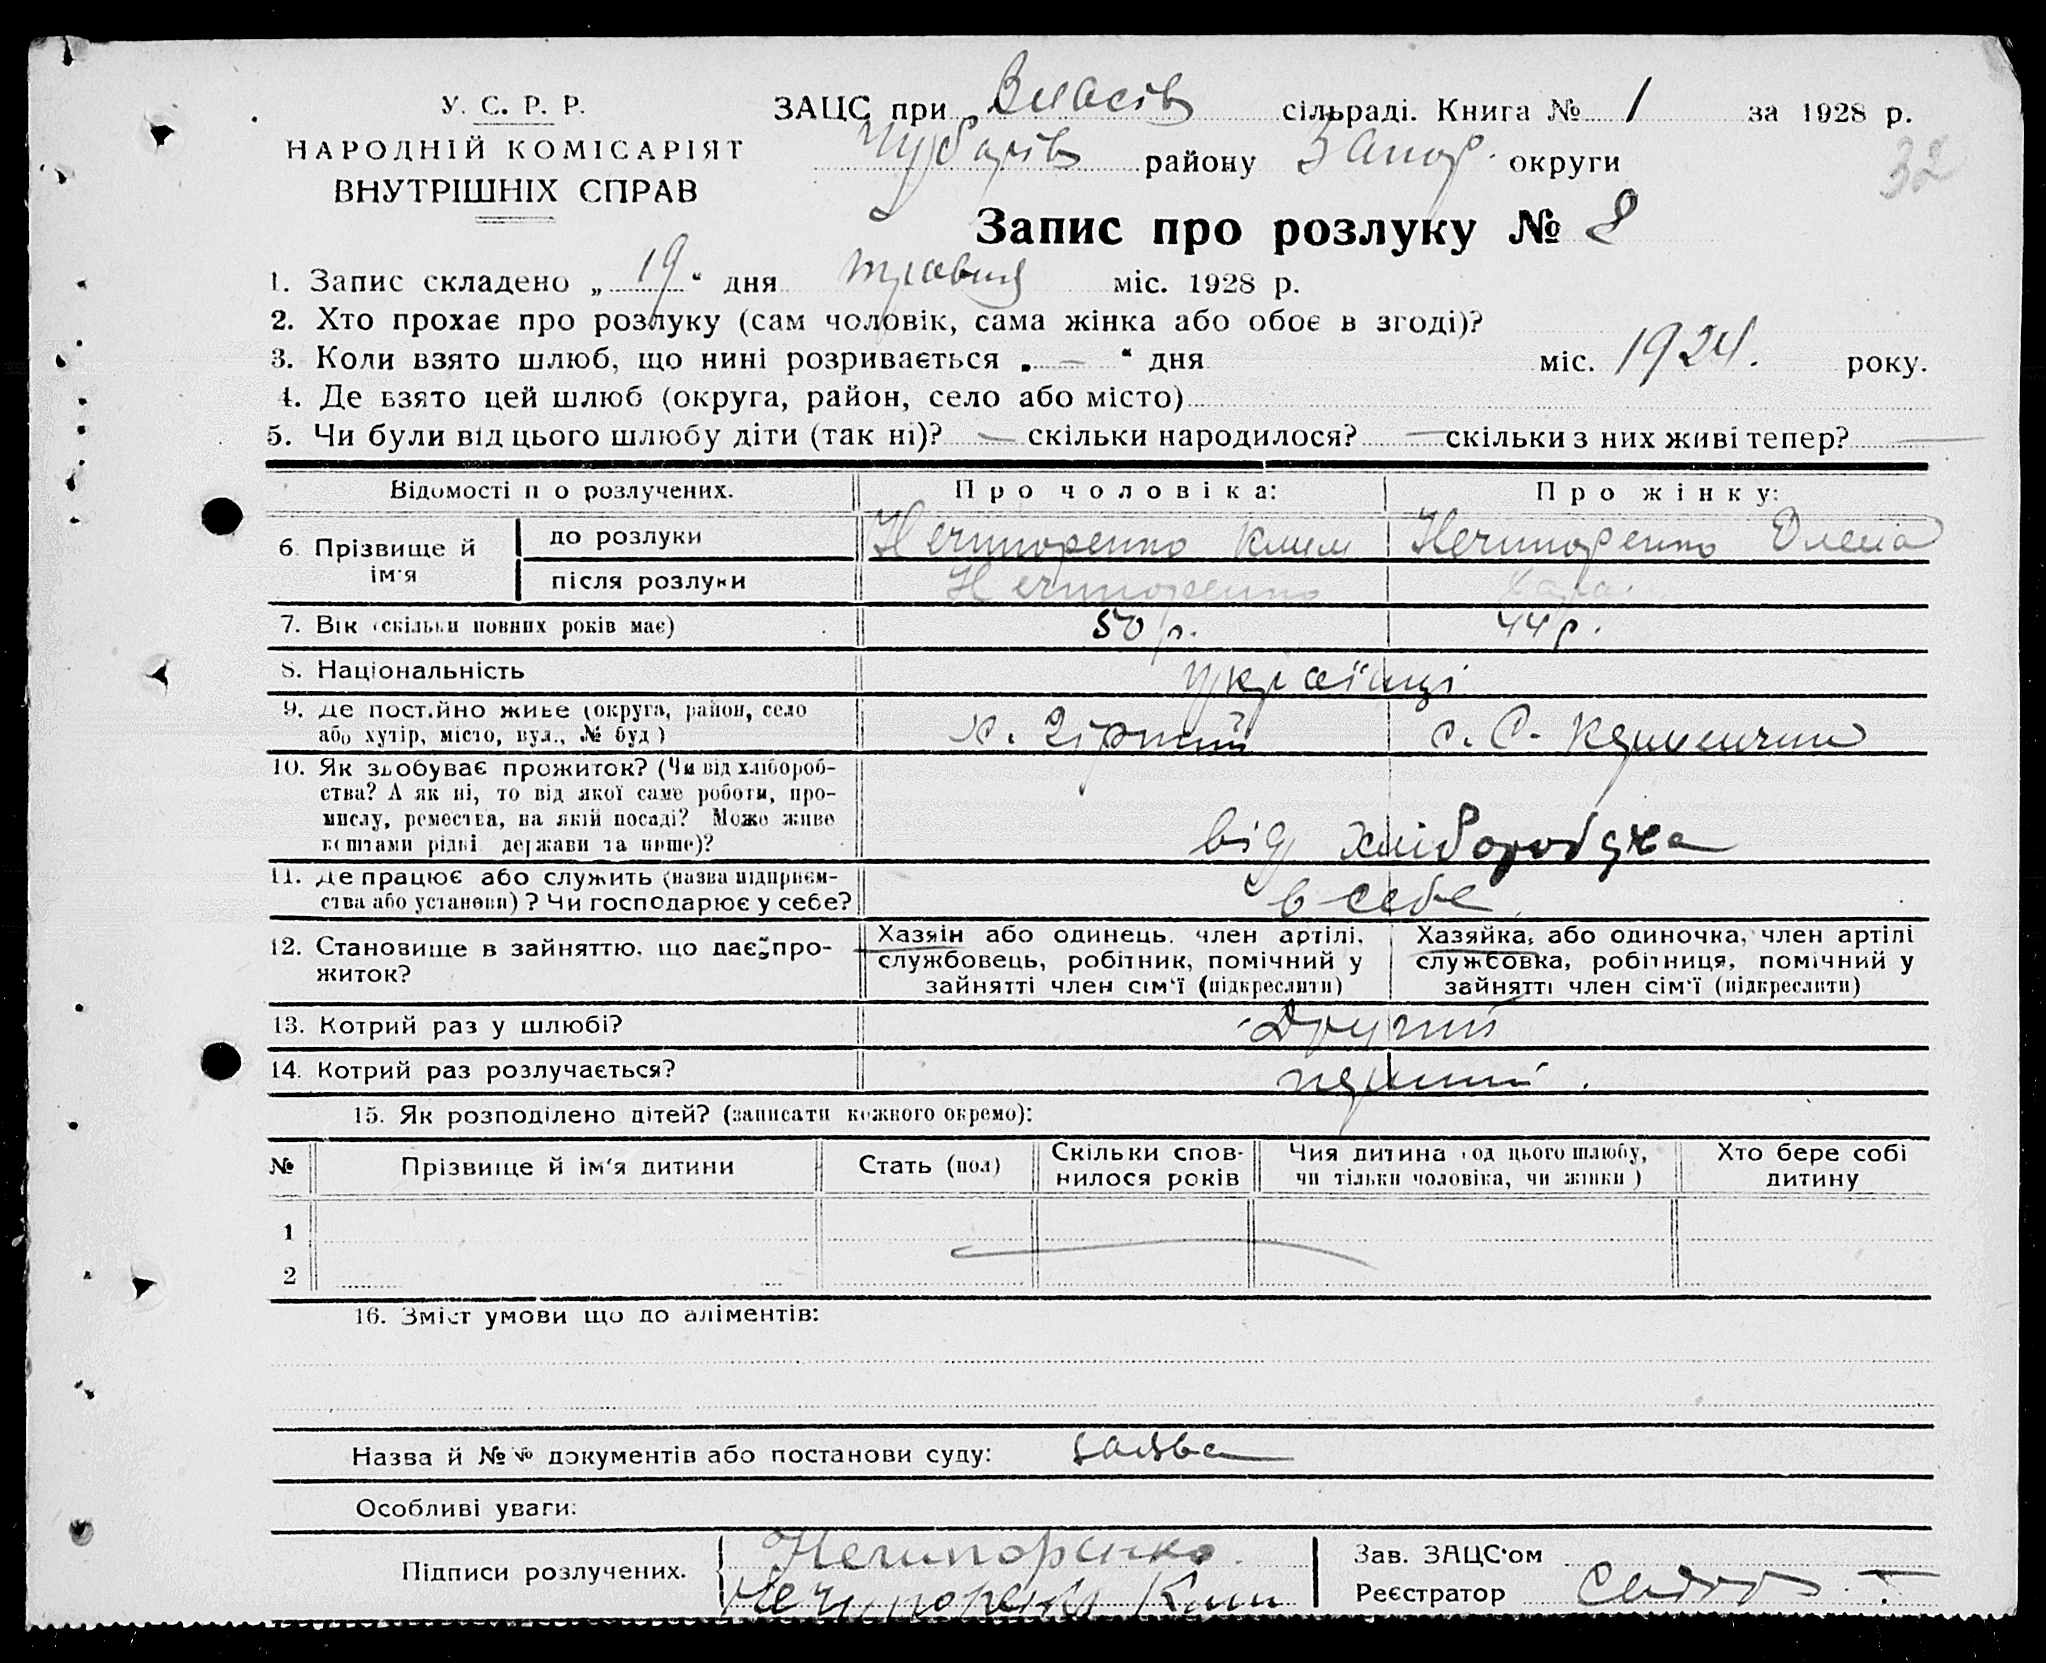 У. С. Р. Р.
НАРОДНІЙ КОМІСАРІЯТ
ВНУТРІШНІХ СПРАВ
ЗАЦС при Власів сільраді. Книга № 1 за 1928 р.
Чубарів району Запор. округи
32
Запис про розлуку № 8
1. Запис складено „ 19 “ дня травня міс. 1928 р.
2. Хто прохає про розлуку (сам чоловік, сама жінка або обоє в згоді)?
3. Коли взято шлюб, що нині розривається „ — “ дня міс. 1924. року.
4. Де взято цей шлюб (округа, район, село або місто)
5. Чи були від цього шлюбу діти (так ні)? — скільки народилося? — скільки з них живі тепер? —
Відомості п о розлучених. Про чоловіка: Про жінку:
6. Прізвище й ім'я до розлуки Нечипоренко Клим Нечипоренко Олена
після розлуки Нечипоренко
7. Вік (скільки повних років має) 50 р. 44 р.
8. Національність українці
9. Де постійно живе (округа, район, село
або хутір, місто, вул., № буд) с. С.
10. Як здобуває прожиток? (Чи від хлібороб-
ства? А як ні, то від якої саме роботи, про-
мислу, ремества, на якій посаді? Може живе
коштами рідні держави та инше)? від
11. Де працює або служить (назва підприєм-
ства або установи)? Чи господарює у себе? в себе
12. Становище в зайняттю, що дає про-
житок?
Хазяїн або одинець, член артілі,
службовець, робітник, помічний у
зайнятті член сім'ї (підкреслити)
Хазяйка, або одиночка, член артілі
службовка, робітниця, помічний у
зайнятті член сім'ї (підкреслити)
13. Котрий раз у шлюбі? Другий
14. Котрий раз розлучається? перший.
15. Як розподілено дітей? (записати кожного окремо):
№ Прізвище й ім'я дитини Стать (пол) Скільки спов-
нилося років Чия дитина (од цього шлюбу,
чи тільки чоловіка, чи жінки) Хто бере собі
дитину
1
2
16. Зміст умови що до аліментів:
Назва й №№ документів або постанови суду: заява
Особливі уваги:
Підписи розлучених. Нечипоренко
Нечипоренко Клим
Зав. ЗАЦС'ом
Реєстратор